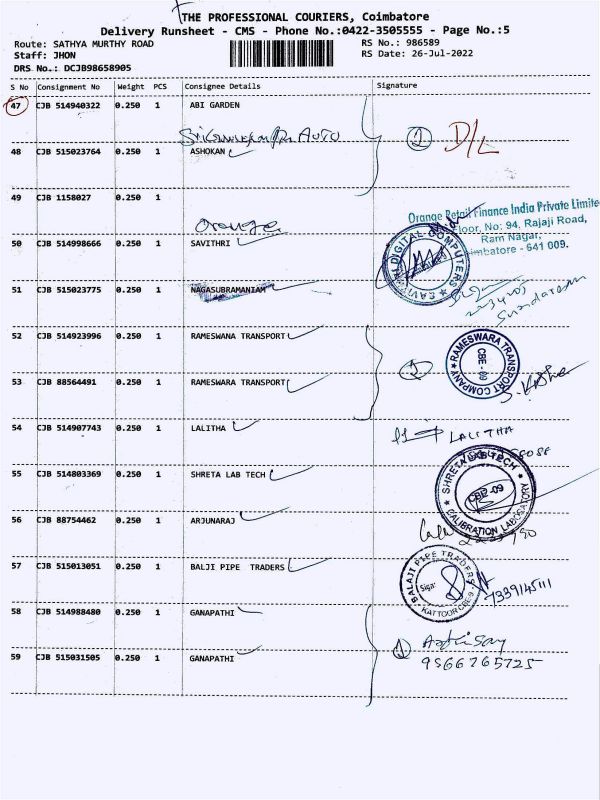 THE PROFESSIONAL COURIERS, Coimbatore
Delivery Runsheet - CMS - Phone No.:0422-3505555 - Page No.:5
Route: SATHYA MURTHY ROAD
RS No.: 986589
Staff: JHON
RS Date: 26-Jul-2022
DRS No.: DCJB98658905
S No Consignment No Weight PCS Consignee Details Signature
47 CJB 514940322 0.250 1 ABI GARDEN
AUTO
2 D/L
48 CJB 515023764 0.250 1 ASHOKAN
49 CJB 1158027 0.250 1
Orange
Orange Retail Finance India Private Limite
Floor, No: 94, Rajaji Road,
Ram Nagar,
imbatore - 641 009.
50 CJB 514998666 0.250 1 SAVITHRI
DIGITAL COMPUTERS
51 CJB 515023775 0.250 1 NAGASUBRAMANIAM
Sundaresan
52 CJB 514923996 0.250 1 RAMESWANA TRANSPORT
RAMESWARA TRANSPORT COMPANY
CBE - 09
2
53 CJB 88564491 0.250 1 RAMESWARA TRANSPORT
54 CJB 514907743 0.250 1 LALITHA
LALITHA
55 CJB 514803369 0.250 1 SHRETA LAB TECH
SHRETA LAB TECH
CBE-09
CALIBRATION LABORATORY
56 CJB 88754462 0.250 1 ARJUNARAJ
57 CJB 515013051 0.250 1 BALJI PIPE TRADERS
BALAJI PIPE TRADERS
Sign:
KATTOOR CBE-9
7339145111
58 CJB 514988480 0.250 1 GANAPATHI
1
9566765725
59 CJB 515031505 0.250 1 GANAPATHI